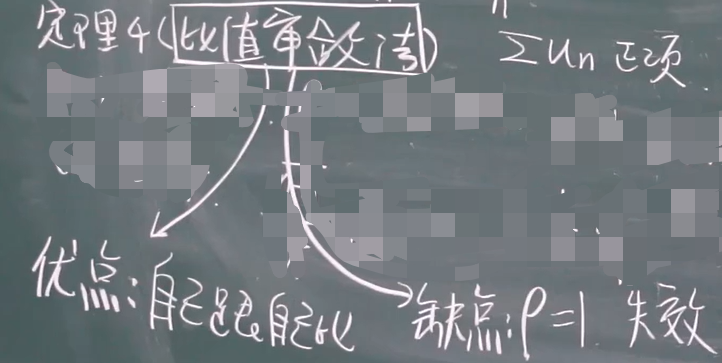 定理4(比值审敛法) ∑un 正项
优点:自己跟自己比 缺点:ρ=1 失效